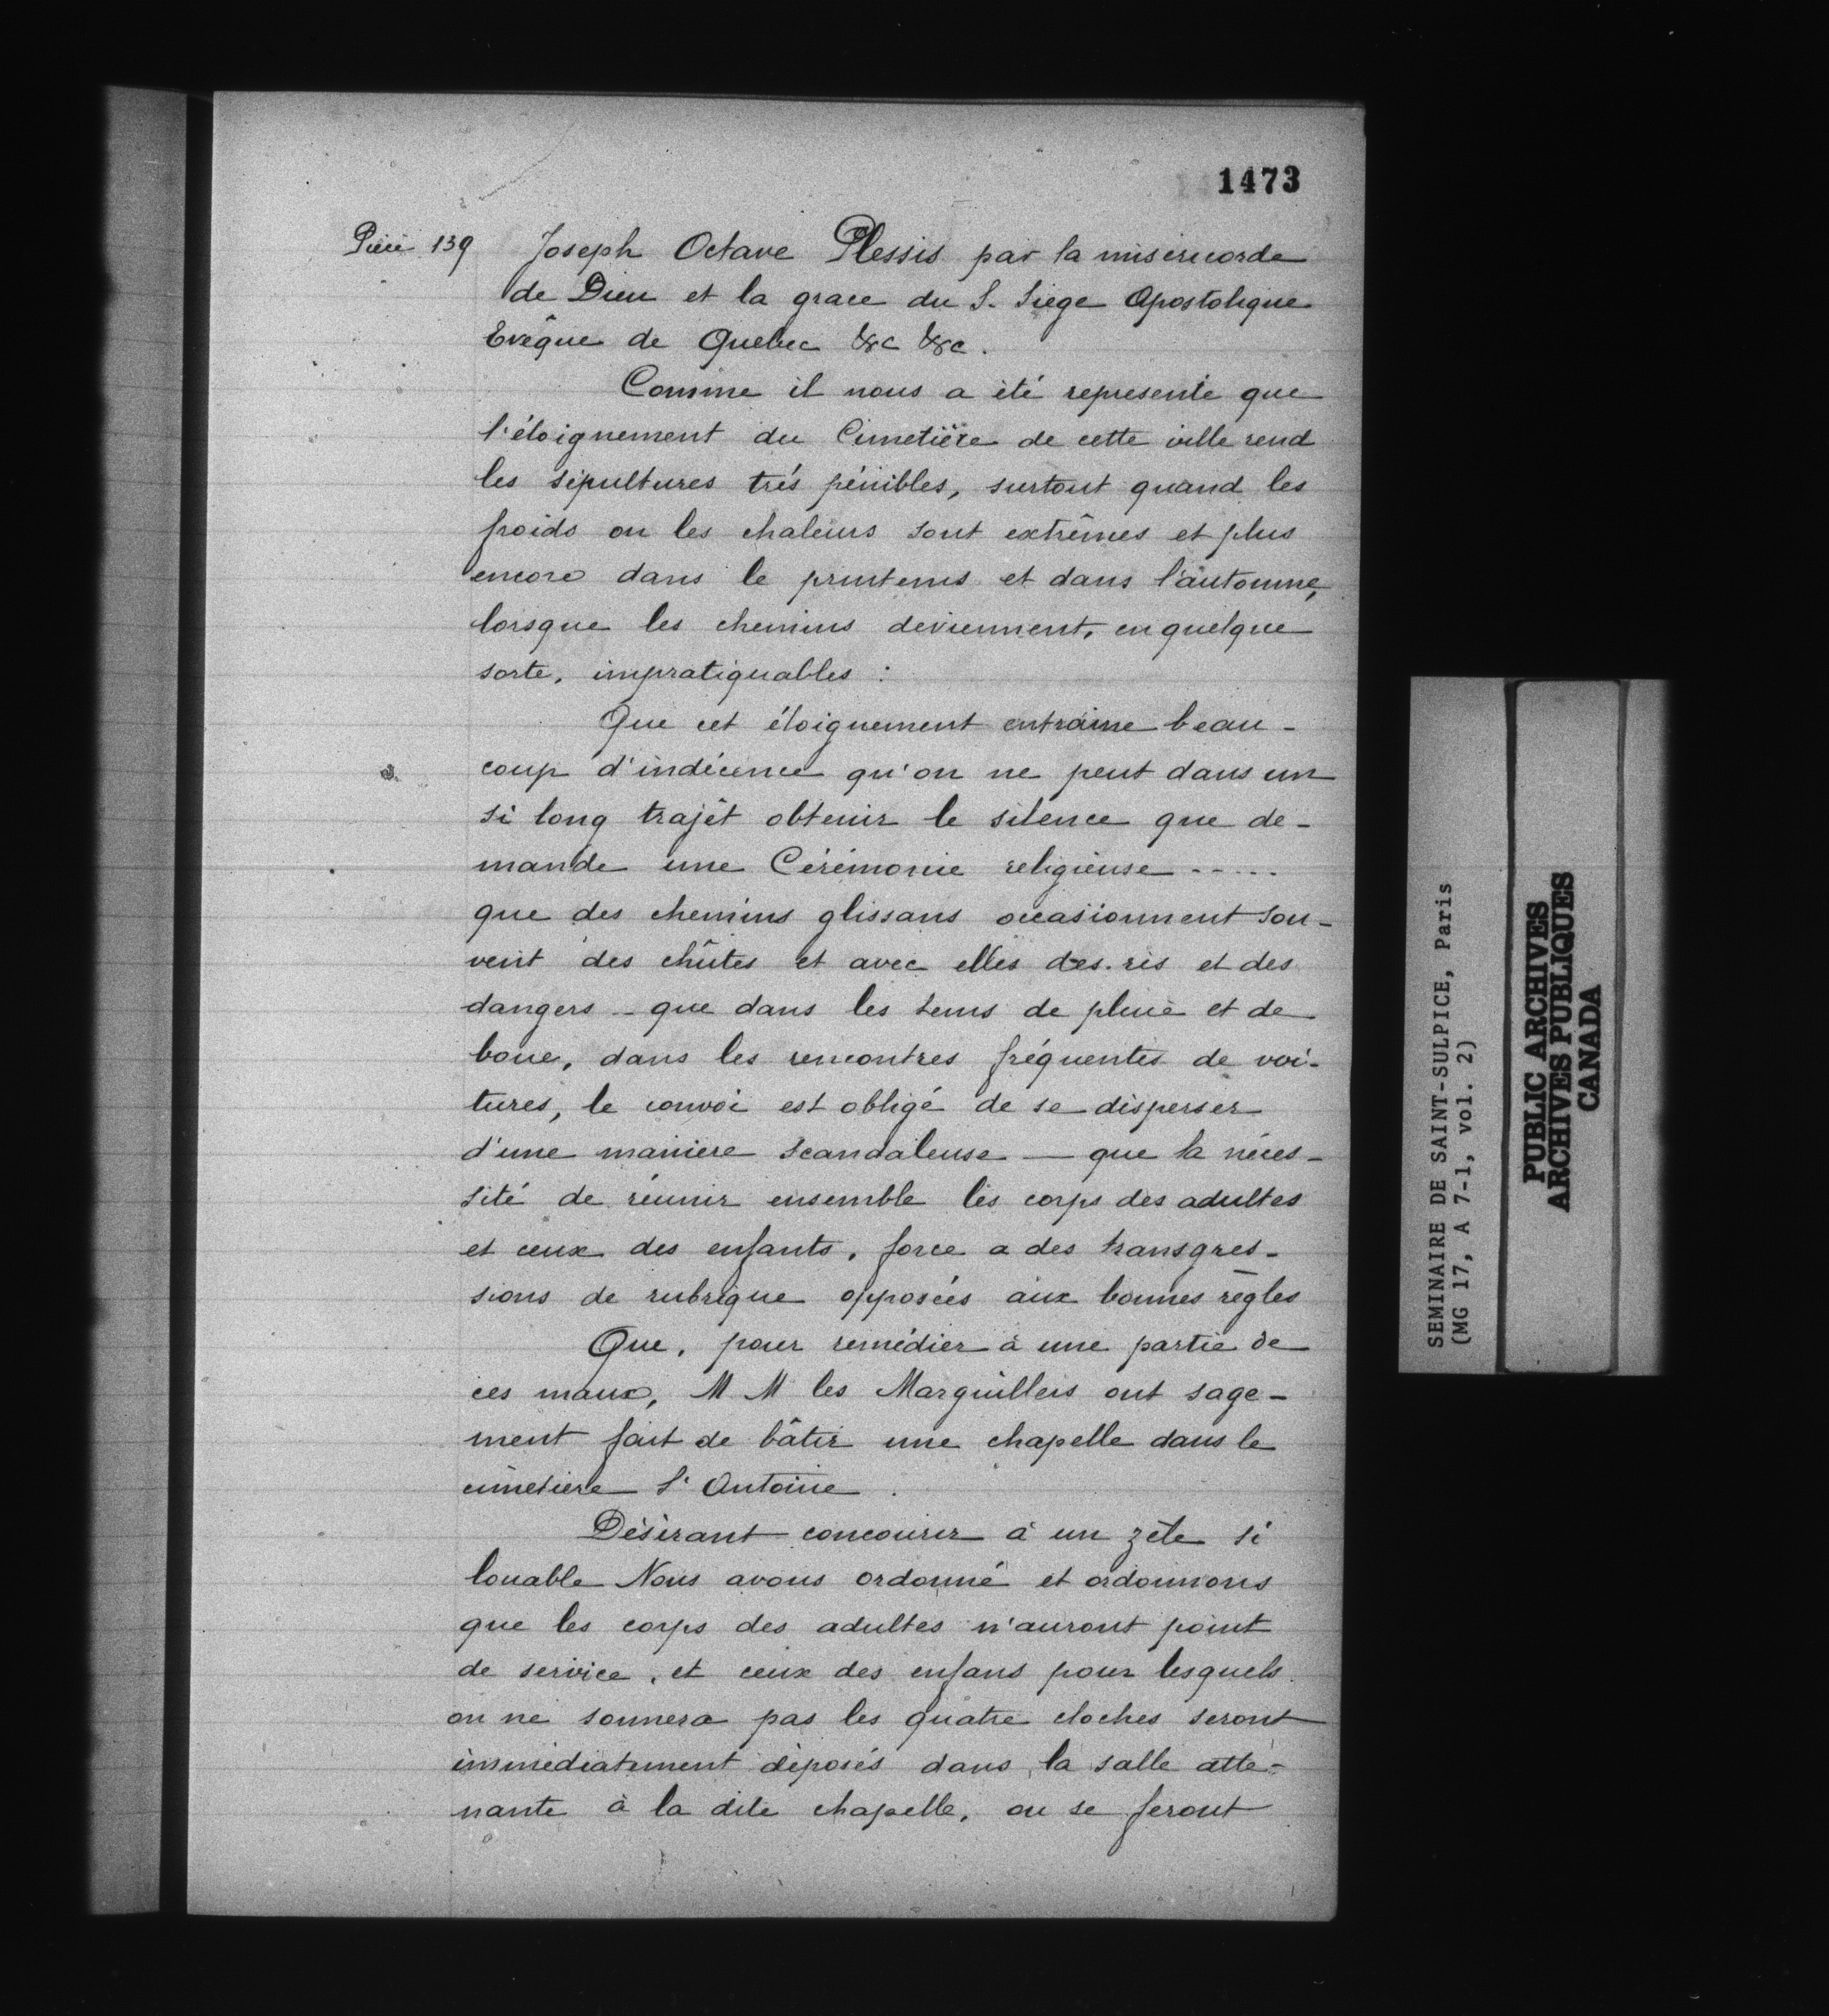 1473
Pièce 139
Joseph Octave Plessis par la misericorde
de Dieu et la grace du S. Siege Apostolique
Evêque de Quebec &c &c.
Comme il nous a été representé que
l'éloignement du Cimetière de cette ville rend
les sépultures trés pénibles, surtout quand les
froids ou les chaleurs sont extrêmes et plus
encore dans le printems et dans l'automne,
lorsque les chemins deviennent, en quelque
sorte, impratiquables :
Que cet éloignement entraine beau-
coup d'indécence qu'on ne peut dans un
si long trajêt obtenir le silence que de-
mande une Cérémonie religieuse -----
que des chemins glissans occasionnent sou-
vent des chûtes et avec elles des ris et des
dangers - que dans les tems de pluie et de
boue, dans les rencontres fréquentes de voi-
tures, le convoi est obligé de se disperser
d'une maniere scandaleuse — que la néces-
sité de réunir ensemble les corps des adultes
et ceux des enfants, force a des transgres-
sions de rubrique opposées aux bonnes règles
Que, pour remédier à une partie de
ces maux, M M les Marguillers ont sage-
ment fait de bâtir une chapelle dans le
cimetiere St Antoine.
Désirant concourir à un zèle si
louable Nous avons ordonné et ordonnons
que les corps des adultes n'auront point
de service, et ceux des enfans pour lesquels
on ne sonnera pas les quatre cloches seront
immédiatement déposés dans la salle atte-
nante à la dite chapelle, ou se feront
SEMINAIRE DE SAINT-SULPICE, Paris
(MG 17, A 7-1, vol. 2)
PUBLIC ARCHIVES
ARCHIVES PUBLIQUES
CANADA